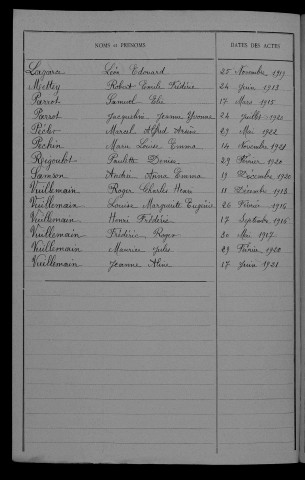 NOMS et PRÉNOMS DATES DES ACTES
Lazare Léon Edouard 25 Novembre 1919
Mettey Robert Emile Frédéric 24 Juin 1913
Parrot Samuel Elie 17 Mars 1915
Parrot Jacqueline Jeanne Yvonne 24 Juillet
Marcel Alfred 29 Mai 1922
Péchin Marie Louise Emma 14 Novembre 1921
Paulette Denise 29 Février 1920
Sanson Andrée Anna Emma 19 Décembre 1920
Vuillemain Roger Charles Henri 11 Décembre 1913
Vuillemain Louise Marguerite Eugénie 26 Février 1916
Vuillemain Henri Frédéric 17 Septembre 1916
Vuillemain Frédéric Roger 30 Mai 1917
Vuillemain Maurice Jules 29 Février 1920
Vuillemain Jeanne Aline 17 Juin 1921